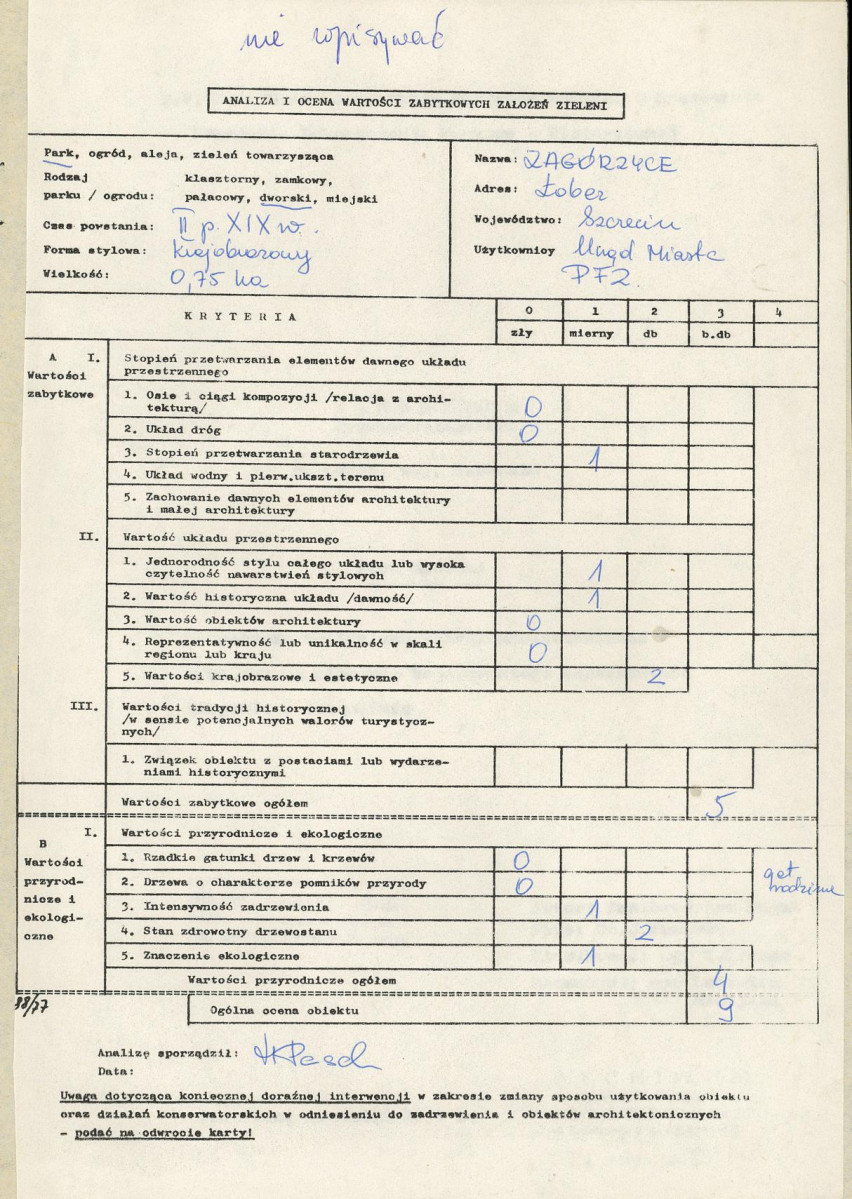 nie wpisywać
ANALIZA I OCENA WARTOŚCI ZABYTKOWYCH ZAŁOŻEŃ ZIELENI
Park, ogród, aleja, zieleń towarzysząca
Rodzaj klasztorny, zamkowy,
parku / ogrodu: pałacowy, dworski, miejski
Czas powstania: II p. XIX w.
Forma stylowa: Krajobrazowy
Wielkość: 0,75 ha
Nazwa: ZAGÓRZYCE
Adres: Łobez
Województwo: Szczecin
Użytkownicy Urząd Miasta
PFZ
KRYTERIA 0 1 2 3 4
zły mierny db b.db
A I. Stopień przetwarzania elementów dawnego układu
Wartości przestrzennego
zabytkowe 1. Osie i ciągi kompozycji /relacja z archi-
tekturą/ 0
2. Układ dróg 0
3. Stopień przetwarzania starodrzewia 1
4. Układ wodny i pierw.ukszt.terenu
5. Zachowanie dawnych elementów architektury
i małej architektury
II. Wartość układu przestrzennego
1. Jednorodność stylu całego układu lub wysoka
czytelność nawarstwień stylowych 1
2. Wartość historyczna układu /dawność/ 1
3. Wartość obiektów architektury 0
4. Reprezentatywność lub unikalność w skali
regionu lub kraju 0
5. Wartości krajobrazowe i estetyczne 2
III. Wartości tradycji historycznej
/w sensie potencjalnych walorów turystycz-
nych/
1. Związek obiektu z postaciami lub wydarze-
niami historycznymi
Wartości zabytkowe ogółem 5
I. Wartości przyrodnicze i ekologiczne
B
Wartości
przyrod-
nicze i
ekologi-
czne
1. Rzadkie gatunki drzew i krzewów 0
gat. rodzime
2. Drzewa o charakterze pomników przyrody 0
3. Intensywność zadrzewienia 1
4. Stan zdrowotny drzewostanu 2
5. Znaczenie ekologiczne 1
Wartości przyrodnicze ogółem 4
38/77
Ogólna ocena obiektu 9
Analizę sporządził:
Data:
Uwaga dotycząca koniecznej doraźnej interwencji w zakresie zmiany sposobu użytkowania obiektu
oraz działań konserwatorskich w odniesieniu do zadrzewienia i obiektów architektonicznych
- podać na odwrocie karty!